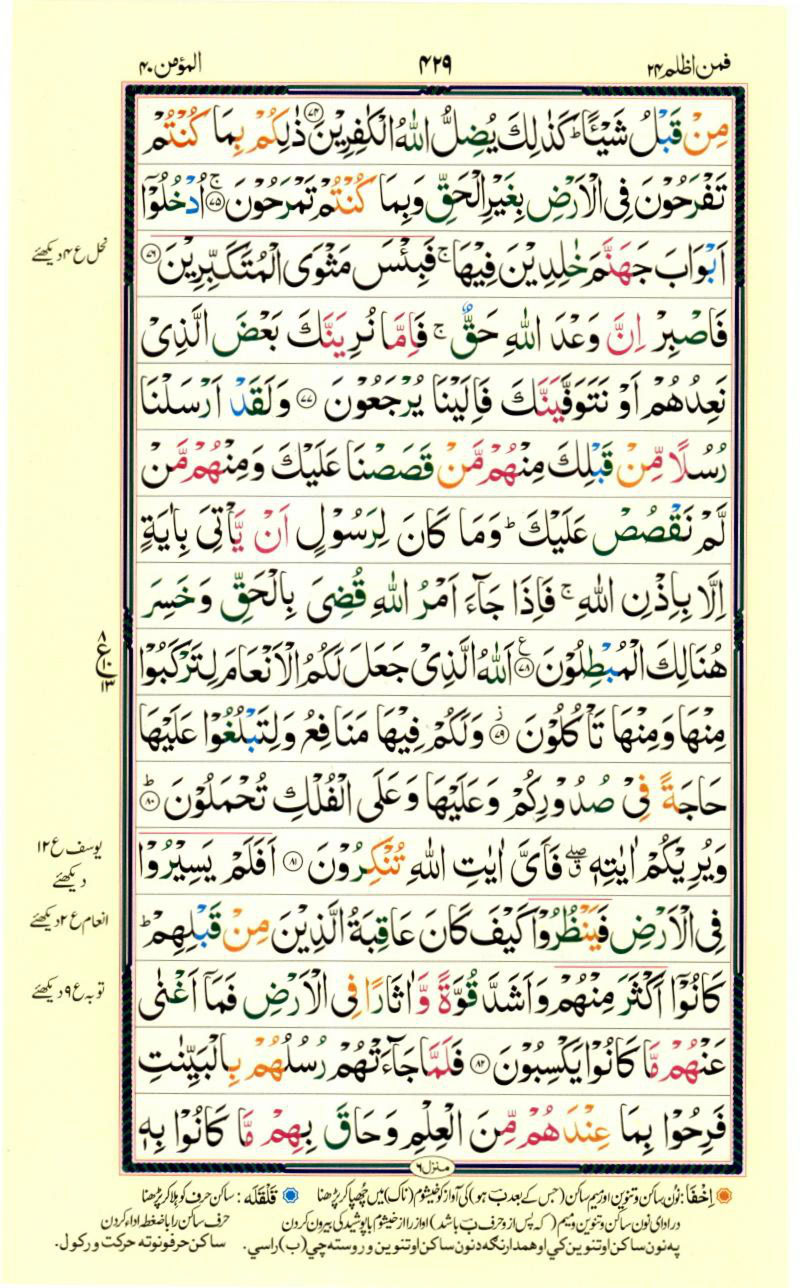 فمن اظلم ۲۴
۴۲۹
المؤمن ۴۰
مِنْ قَبْلُ شَيْئًا ؕ كَذٰلِكَ يُضِلُّ اللّٰهُ الْكٰفِرِيْنَ ﴿۷۴﴾ ذٰلِكُمْ بِمَا كُنْتُمْ
تَفْرَحُوْنَ فِى الْاَرْضِ بِغَيْرِ الْحَقِّ وَبِمَا كُنْتُمْ تَمْرَحُوْنَ ۚ﴿۷۵﴾ اُدْخُلُوْٓا
اَبْوَابَ جَهَنَّمَ خٰلِدِيْنَ فِيْهَا ۚ فَبِئْسَ مَثْوَى الْمُتَكَبِّرِيْنَ ﴿۷۶﴾
نحل ع ۴ دیکھئے
فَاصْبِرْ اِنَّ وَعْدَ اللّٰهِ حَقٌّ ۚ فَاِمَّا نُرِيَنَّكَ بَعْضَ الَّذِىْ
نَعِدُهُمْ اَوْ نَتَوَفَّيَنَّكَ فَاِلَيْنَا يُرْجَعُوْنَ ﴿۷۷﴾ وَلَقَدْ اَرْسَلْنَا
رُسُلًا مِّنْ قَبْلِكَ مِنْهُمْ مَّنْ قَصَصْنَا عَلَيْكَ وَمِنْهُمْ مَّنْ
لَّمْ نَقْصُصْ عَلَيْكَ ؕ وَمَا كَانَ لِرَسُوْلٍ اَنْ يَّاْتِىَ بِاٰيَةٍ
اِلَّا بِاِذْنِ اللّٰهِ ۚ فَاِذَا جَآءَ اَمْرُ اللّٰهِ قُضِىَ بِالْحَقِّ وَخَسِرَ
هُنَالِكَ الْمُبْطِلُوْنَ ﴿۷۸﴾ اَللّٰهُ الَّذِىْ جَعَلَ لَكُمُ الْاَنْعَامَ لِتَرْكَبُوْا
۸
ع ۱۰
۱۳
مِنْهَا وَمِنْهَا تَاْكُلُوْنَ ﴿۷۹﴾ وَلَكُمْ فِيْهَا مَنَافِعُ وَلِتَبْلُغُوْا عَلَيْهَا
حَاجَةً فِىْ صُدُوْرِكُمْ وَعَلَيْهَا وَعَلَى الْفُلْكِ تُحْمَلُوْنَ ؕ﴿۸۰﴾
وَيُرِيْكُمْ اٰيٰتِهٖ ۖ فَاَىَّ اٰيٰتِ اللّٰهِ تُنْكِرُوْنَ ﴿۸۱﴾ اَفَلَمْ يَسِيْرُوْا
یوسف ع ۱۲
دیکھئے
فِى الْاَرْضِ فَيَنْظُرُوْا كَيْفَ كَانَ عَاقِبَةُ الَّذِيْنَ مِنْ قَبْلِهِمْ ؕ
انعام ع ۲ دیکھئے
كَانُوْٓا اَكْثَرَ مِنْهُمْ وَاَشَدَّ قُوَّةً وَّاٰثَارًا فِى الْاَرْضِ فَمَآ اَغْنٰى
توبه ع ۹ دیکھئے
عَنْهُمْ مَّا كَانُوْا يَكْسِبُوْنَ ﴿۸۲﴾ فَلَمَّا جَآءَتْهُمْ رُسُلُهُمْ بِالْبَيِّنٰتِ
فَرِحُوْا بِمَا عِنْدَهُمْ مِّنَ الْعِلْمِ وَحَاقَ بِهِمْ مَّا كَانُوْا بِهٖ
منزل ۶
اِخْفَا : نون ساکن و تنوین اور میم ساکن (جس کے بعد ب ہو) کی آواز کو خیشوم (ناک) میں چھپا کر پڑھنا
قَلْقَلَه : ساکن حرف کو ہلا کر پڑھنا
در ادای نون ساکن و تنوین و میم ( که پس از و حرف ب باشد ) آواز را از خیشوم با پوشیدگی بیرون کردن
حرف ساکن را با ضغطه ادا کردن
په نون ساکن او تنوین کي او همدارنگه د نون ساکن او تنوین وروسته چي (ب) راسي.
ساکن حرفونو ته حرکت ورکول.